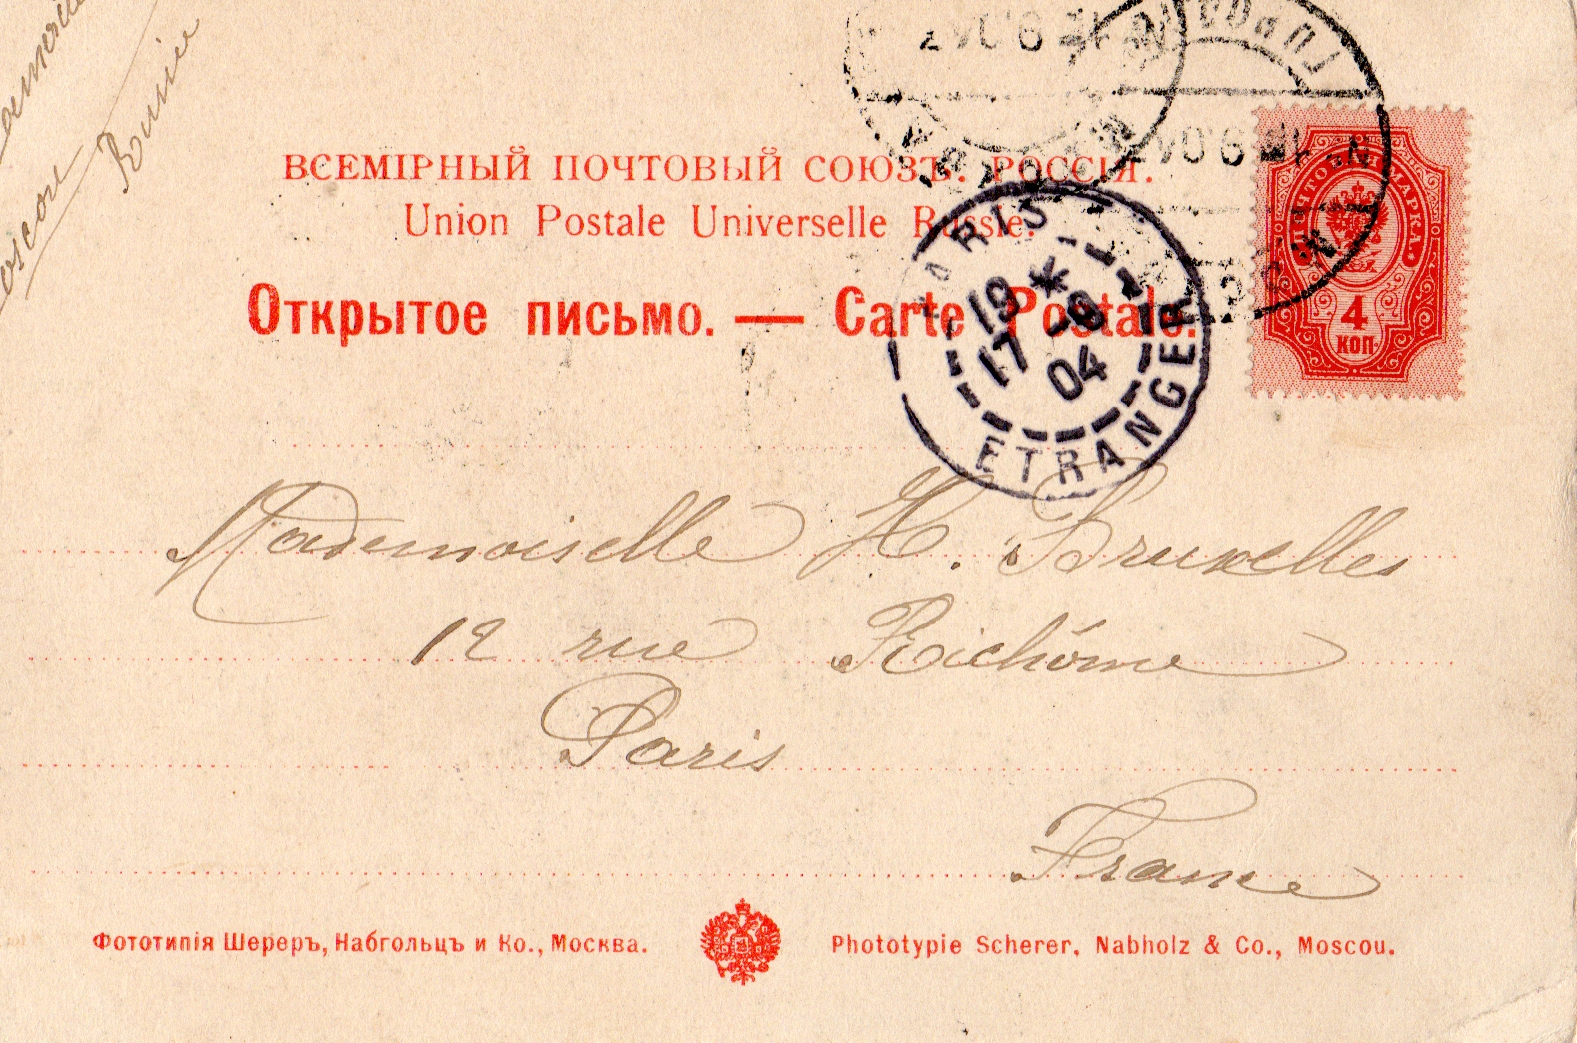 Moscou
Russie
ВСЕМІРНЫЙ ПОЧТОВЫЙ СОЮЗЪ. РОССІЯ.
Union Postale Universelle Russie.
Открытое письмо. — Carte Postale.
ПОЧТОВАЯ МАРКА.
4
КОП.
PARIS
19 *
17 -9
04
ETRANGER
Mademoiselle H. Bruxelles
12 rue Richôme
Paris
France
Фототипія Шереръ, Набгольцъ и Ко., Москва.
Phototypie Scherer, Nabholz & Co., Moscou.